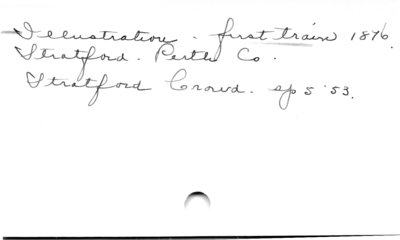 Illustration - first train 1876.
Stratford. Perth Co.
Stratford Crowd. ap 5 '53.